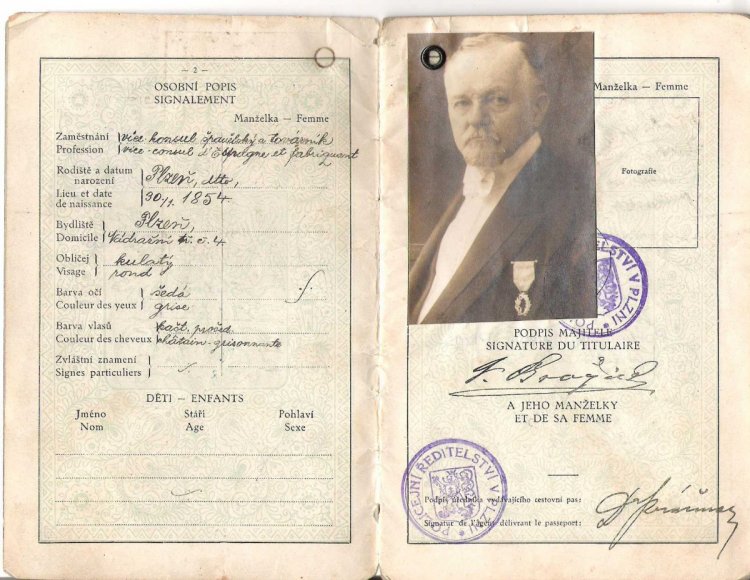 — 2 —
OSOBNÍ POPIS
SIGNALEMENT
Manželka — Femme
Zaměstnání
Profession
vice konsul španělský a továrník
vice-consul d'Espagne et fabriquant
Rodiště a datum
narození
Lieu et date
de naissance
Plzeň, dtto,
30/1. 1854.
Bydliště
Domicile
Plzeň,
Nádražní tř. č. 4
Obličej
Visage
kulatý
rond
Barva očí
Couleur des yeux
šedá
grise
Barva vlasů
Couleur des cheveux
kašt. prošed.
châtain-grisonnante
Zvláštní znamení
Signes particuliers
DĚTI — ENFANTS
Jméno Stáří Pohlaví
Nom Age Sexe
Manželka — Femme
Fotografie
ELSTVÍ V PLZNI
PODPIS MAJITELE
SIGNATURE DU TITULAIRE
A JEHO MANŽELKY
ET DE SA FEMME
POLICEJNÍ ŘEDITELSTVÍ V PLZNI
Podpis úředníka vydávajícího cestovní pas:
Signature de l'agent délivrant le passeport: